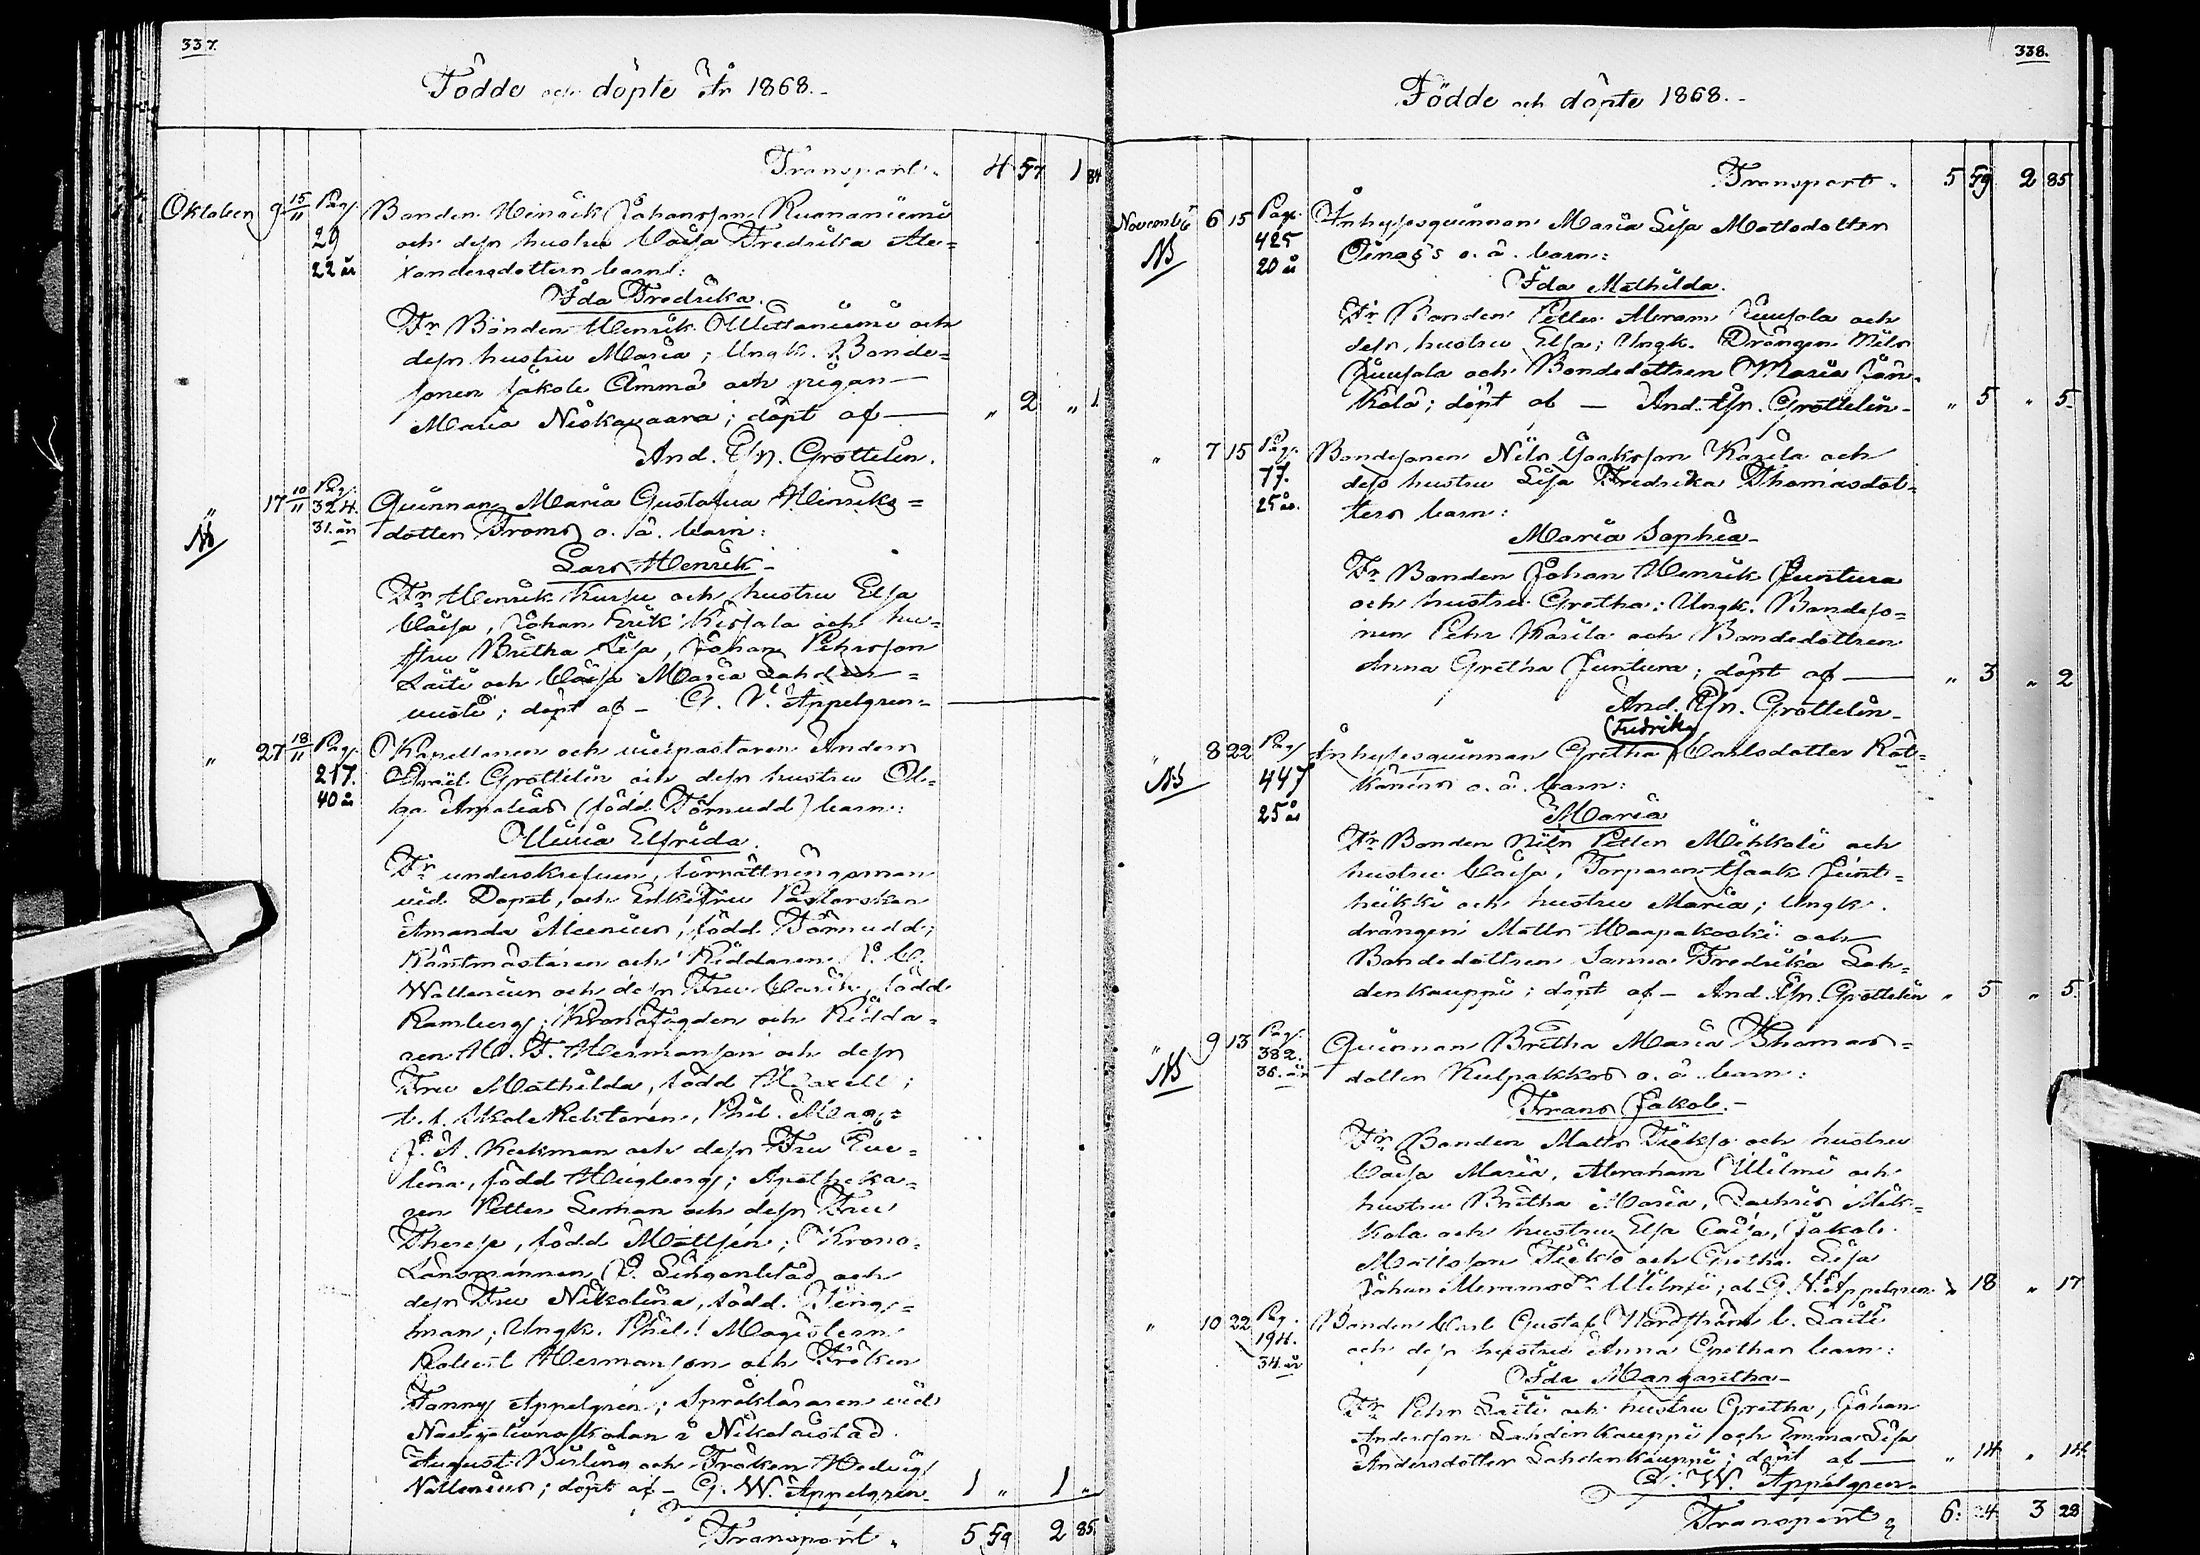 337.
Födde och döpte År 1868.
Transport. 4 57 1 84
Oktober 9 15/11 Pag. Bonden Hinrik Johansson Ruonaniemi
29 och dess hustru Caisa Fredrika Ale-
22 år xandersdotters barn:
Ida Fredrika.
Fr. Bonden Henrik Mettäniemi och
dess hustru Maria; Ungk. Bonde-
sonen Jakob Ämmä och pigan
Maria Niskavaara; döpt af — „ 2 „ 1
And. Isr. Grottelin.
„ 17 10/11 Pag. 324. Quinnan Maria Gustafva Hinriks-
NB 31. år dotter Froms o. ä. barn:
Lars Henrik.
Fr. Henrik Kursu och hustru Elsa
Caisa, Johan Erik Kisjala och hu-
stru Britha Lisa, Johan Pehrsson
Laiti och Caisa Maria
; döpt af — G. W. Appelgren
„ 27 18/11 Pag. Kapellanen och vicepastoren Anders
217. Israel Grottelin och dess hustru Ol-
40 år ga Amalias (född Törnudd) barn:
Olivia Elfrida.
Fr. underskrefven, förrättningsman
vid Dopet, och Enkefru Pastorskan
Amanda , född Törnudd;
Räntmästaren och Riddaren
Wallenius och dess Fru , född
Ramberg; Kronofogden och Ridda-
ren M. F. Hermanson och dess
Fru Mathilda, född ;
t. f. Skole Rektoren, Phil. Mag.
J. A. Keckman och dess Fru Eve-
lina, född Heigberg; Apotheka-
ren Petter Leman och dess Fru
Therese, född ; Krono-
Länsmannen och
dess Fru Nikolina, född
man; Ungk. Phil. Magistern
Robert Hermanson och Fröken
Fanny Appelgren; Språkläraren vid
Navigationsskolan i Nikolaistad
August och Fröken Hedvig
Wallenius; döpt af — G. W. Appelgren 1 „ 1 „
Transport. 5 59 2 85.
338.
Födde och döpte 1868.
Transport. 5 59 2 85
November 6 15 Pag. Inhysesquinnan Maria Lisa Mattsdotter
NB 425 Oinas's o. ä. barn:
20 år
Ida Mathilda.
Fr. Bonden Petter Abram Juusola och
dess hustru Elsa; Ungk. Drängen Nils
Juusola och Bondedottren Maria Jän-
kälä; döpt af — And. Isr. Grottelin „ 5 „ 5.
„ 7 15 Pag. Bondesonen Nils Isaksson Karila och
77. dess hustru Lisa Fredrika Thomasdot-
25 år. ters barn:
Maria Sophia
Fr. Bonden Johan Henrik Juntura
och hustru Gretha; Ungk. Bondeso-
nen Pehr Karila och Bondedottren
Anna Gretha Juntura; döpt af — „ 3 „ 2
And. Isr. Grottelin
Fredrika
„ 8 22 Pag. Inhysesquinnan Gretha Carlsdotter Röt-
NB 447 könens o. ä. barn:
25 år
Maria
Fr. Bonden Nils Petter Mihkali och
hustru Caisa, Torparen Isaak Junt-
hiikki och hustru Maria; Ungk.
drängen Matts Haapakoski och
Bondedottren Sanna Fredrika Lah-
denkauppi; döpt af — And. Isr. Grottelin „ 5 „ 5.
„ 9 13 Pag. Quinnan Britha Maria Thomas-
NB 382. dotter Kulpakkos o. ä. barn:
36. år
Frans Jakob.
Fr. Bonden Matts Tiekso och hustru
Caisa Maria, Abraham Ulilmi och
hustru Britha Maria, Zachris Mik-
kola och hustru Elsa Caisa, Jakob
Mattsson Tiekso och Gretha Lisa
Johan Hermansdr. ; af G. W. Appelgren. „ 18 „ 17
„ 10 22 Pag. Bonden Carl Gustaf Nordström l. Laiti
194. och dess hustrus Anna Grethas barn:
34. år
Ida Margaretha
Fr. Pehr Laiti och hustru Gretha, Johan
Andersson Lahdenkauppi och Emma Lisa
Andersdotter Lahdenkauppi; döpt af — „ 14 „ 14
G. W. Appelgren.
Transport 6. 24. 3 28